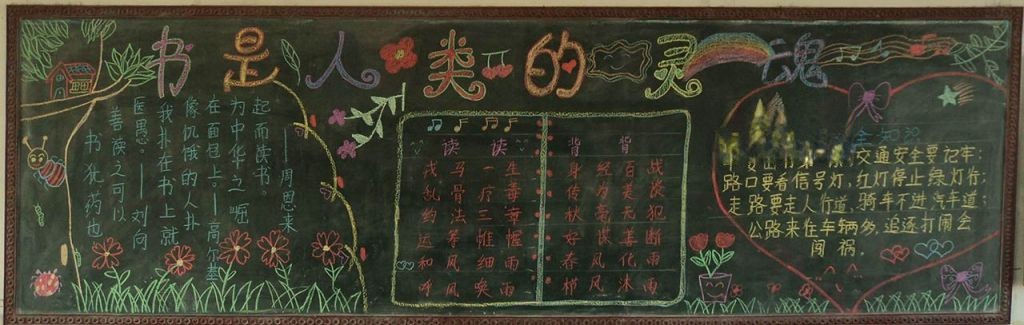 书是人类的灵魂
书犹药也
善读之可以
医愚。——刘向
我扑在书上就
像饥饿的人扑
在面包上。—高尔基
为中华之崛
起而读书。
——周恩来
读 读 背 背
戎马一生 身经百战
骨疗毒 传为美
约法三章 秋毫无犯
运筹惟幄 好断
和风细雨 春风化雨
呼风唤雨 栉风沐雨
全知识
交通安全要记牢;
路口要看信号灯,红灯停止绿灯行;
走路要走人行道,骑车不进汽车道;
公路来往车辆多,追逐打闹会
闯祸。